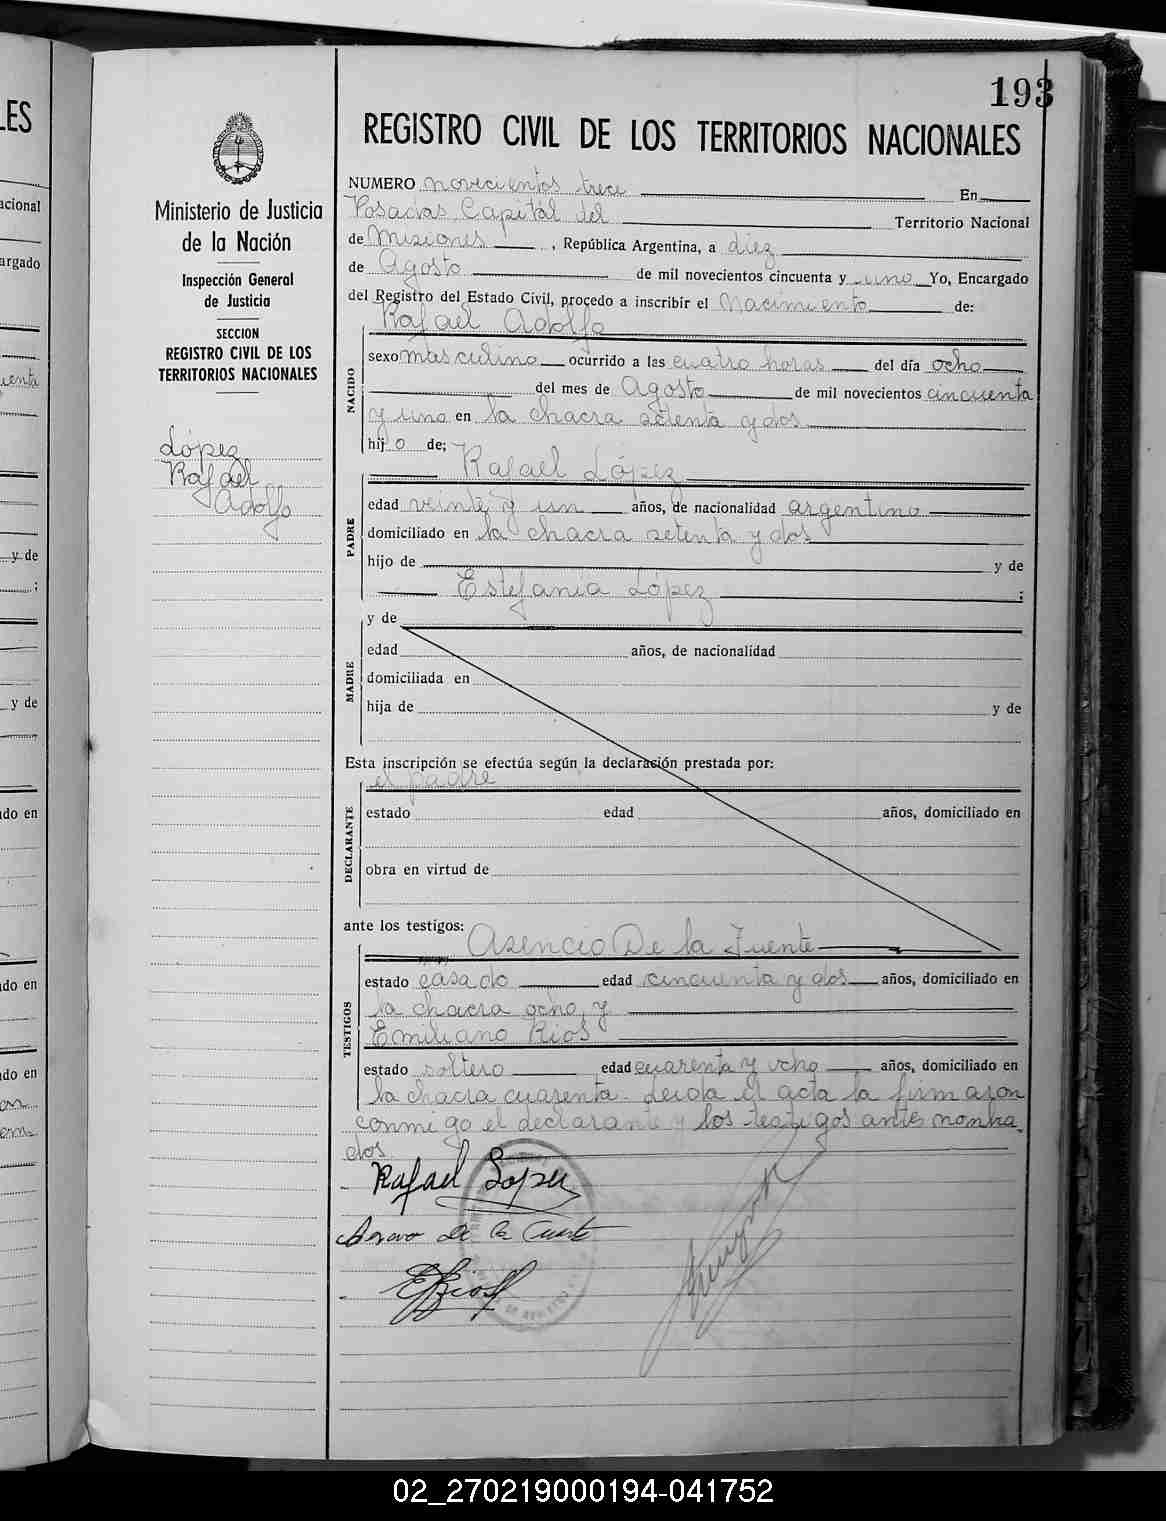 193
REGISTRO CIVIL DE LOS TERRITORIOS NACIONALES
Ministerio de Justicia
de la Nación
Inspección General
de Justicia
SECCION
REGISTRO CIVIL DE LOS
TERRITORIOS NACIONALES
López
Rafael
Adolfo
NUMERO novecientos trece En
Posadas Capital del Territorio Nacional
de Misiones, República Argentina, a diez
de Agosto de mil novecientos cincuenta y uno Yo, Encargado
del Registro del Estado Civil, procedo a inscribir el Nacimiento de:
Rafael Adolfo
NACIDO
sexo masculino ocurrido a las cuatro horas del día ocho
del mes de Agosto de mil novecientos cincuenta
y uno en la chacra setenta y dos
hijo de;
Rafael López
PADRE
edad veinte y un años, de nacionalidad argentino
domiciliado en la chacra setenta y dos
hijo de y de
Estefania López ;
y de
MADRE
edad años, de nacionalidad
domiciliada en
hija de y de
Esta inscripción se efectúa según la declaración prestada por:
el padre
DECLARANTE
estado edad años, domiciliado en
obra en virtud de
ante los testigos: Asencio De la Fuente
TESTIGOS
estado casado edad cincuenta y dos años, domiciliado en
la chacra ocho, y
Emiliano Rios
estado soltero edad cuarenta y ocho años, domiciliado en
la chacra cuarenta. Leida el acta la firmaron
conmigo el declarante y los testigos antes nombra
dos.
Rafael Lopez
De la Fuente
E Rios
LES
acional
argado
uenta
y de
;
y de
do en
do en
do en
02_270219000194-041752